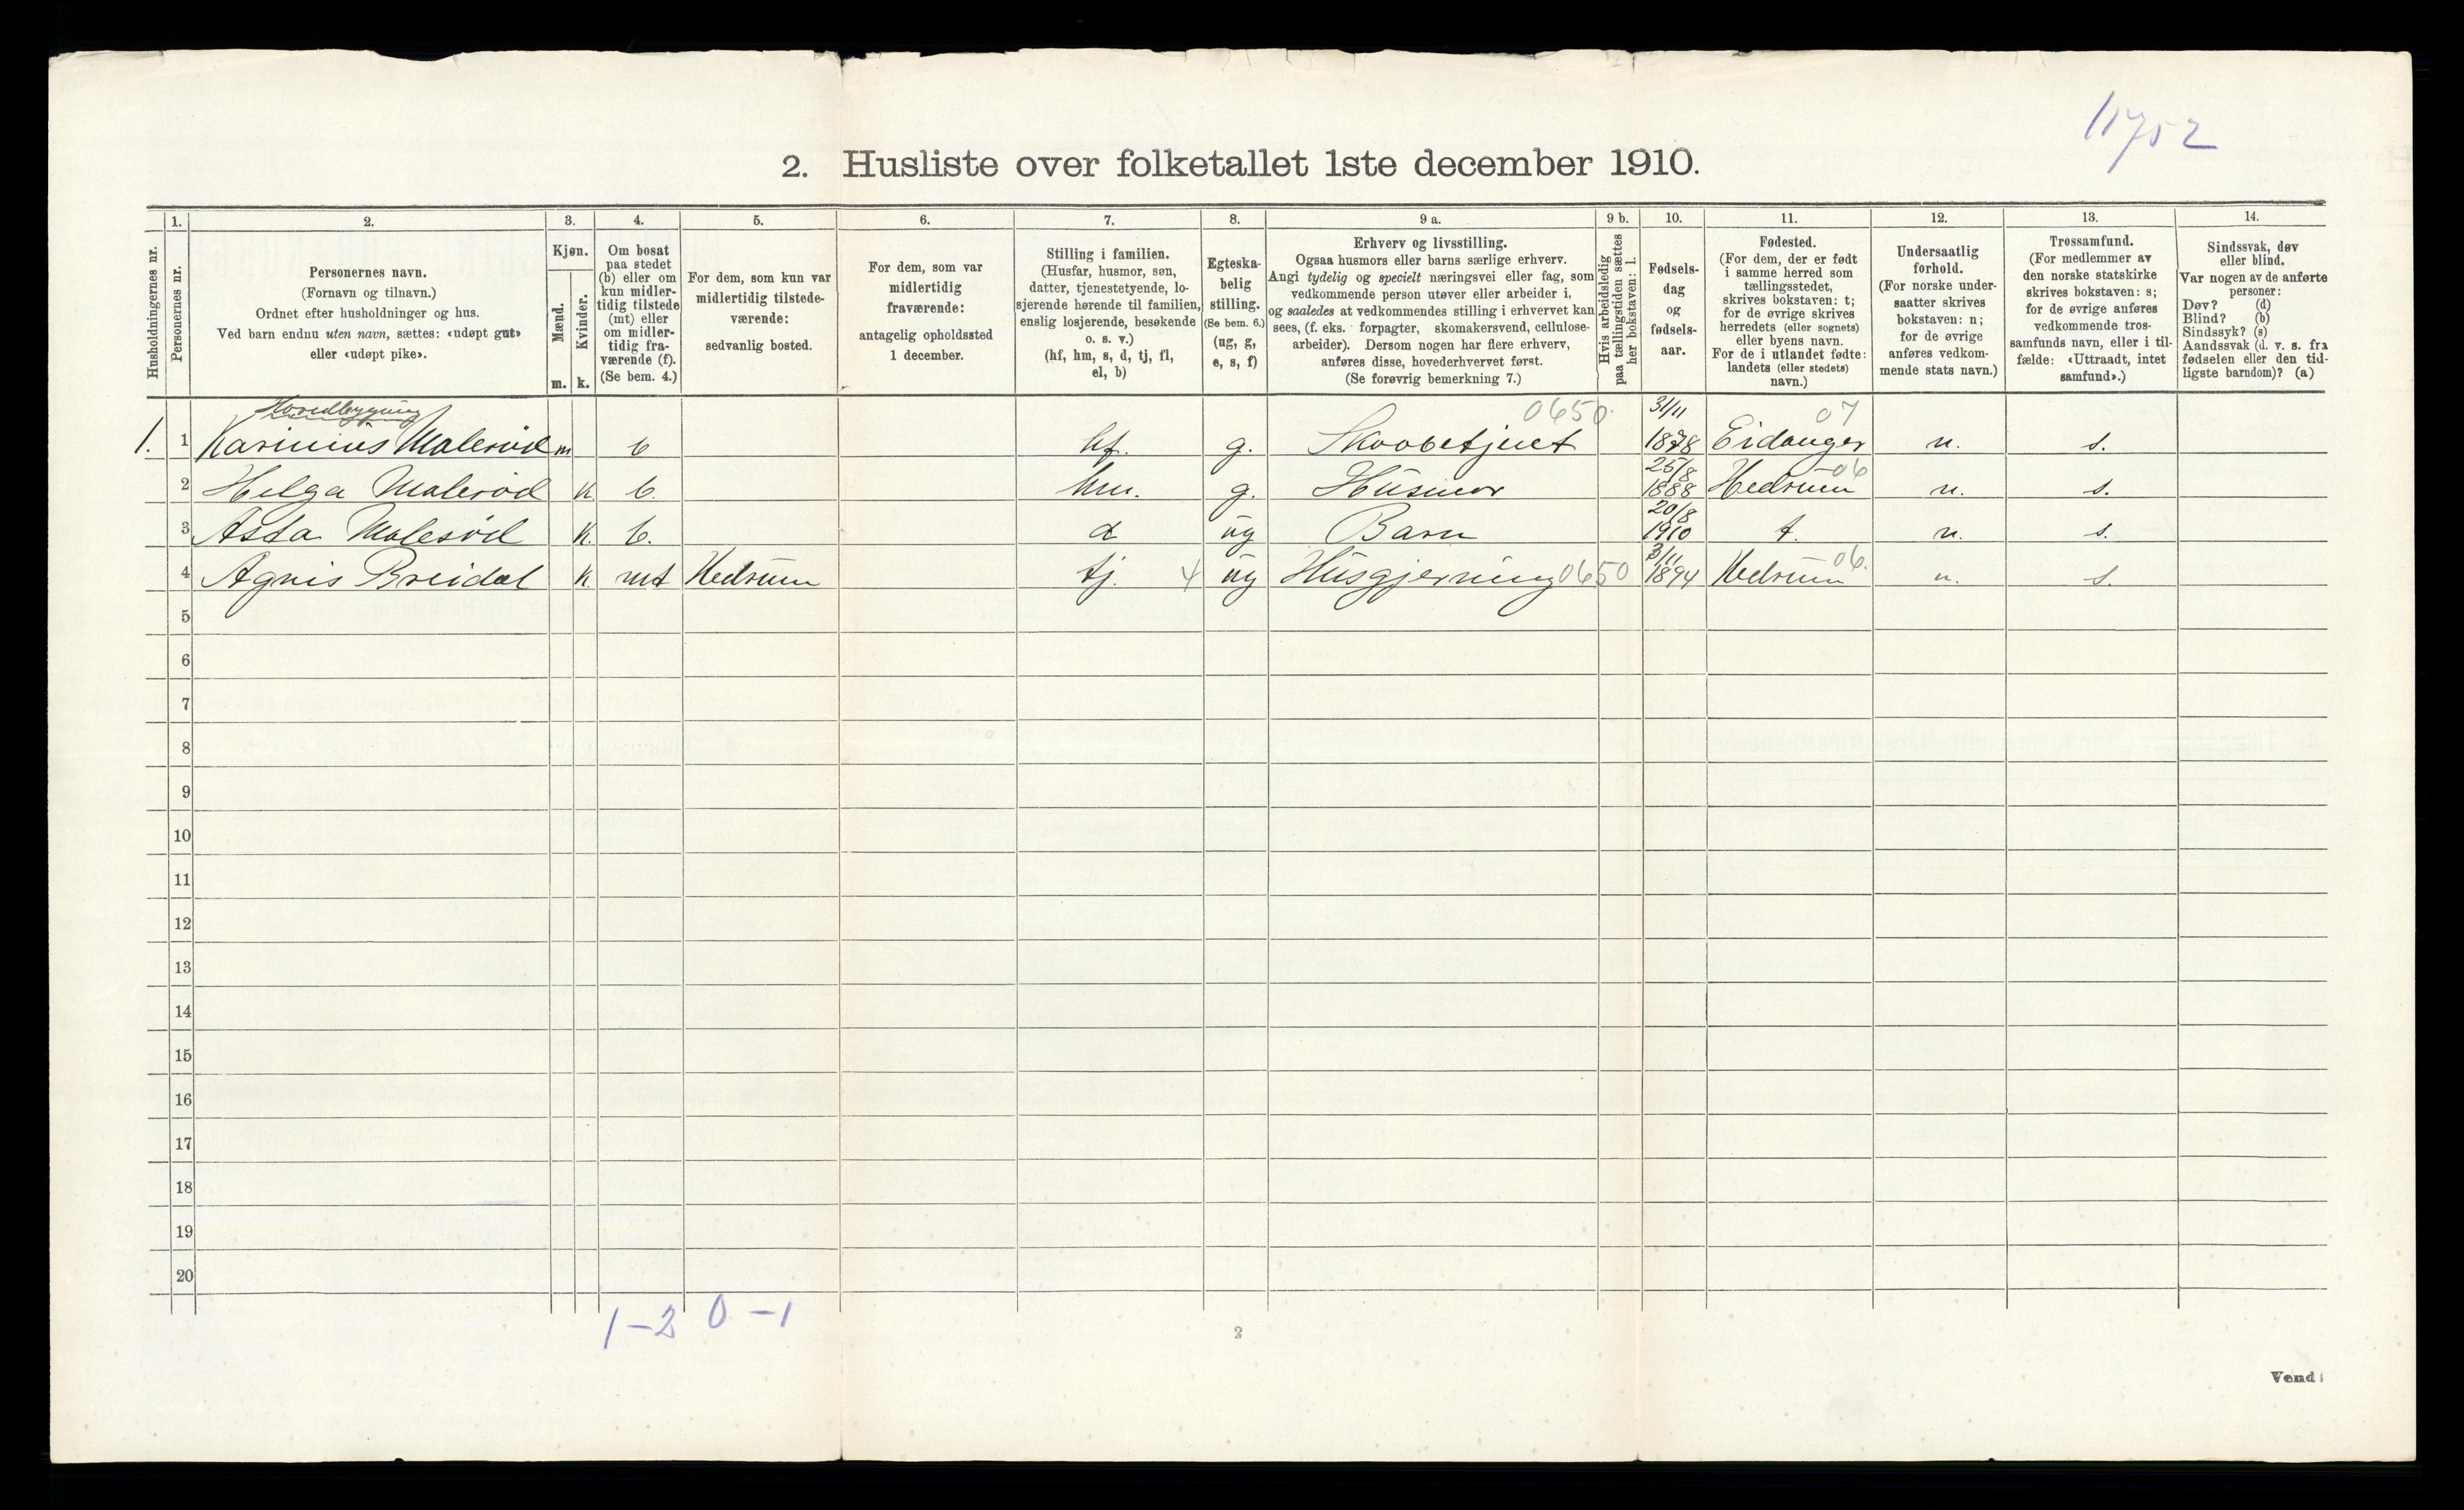 11752
2. Husliste over folketallet 1ste december 1910.
1. 2. 3. 4. 5. 6. 7. 8. 9 a. 9 b. 10. 11. 12. 13. 14.
Husholdningernes nr.
Personernes nr.
Personernes navn.
(Fornavn og tilnavn.)
Ordnet efter husholdninger og hus.
Ved barn endnu uten navn, sættes: «udøpt gut»
eller «udøpt pike».
Kjøn.
Mænd.
Kvinder.
m. k.
Om bosat
paa stedet
(b) eller om
kun midler-
tidig tilstede
(mt) eller
om midler-
tidig fra-
værende (f).
(Se bem. 4.)
For dem, som kun var
midlertidig tilstede-
værende:
sedvanlig bosted.
For dem, som var
midlertidig
fraværende:
antagelig opholdssted
1 december.
Stilling i familien.
(Husfar, husmor, søn,
datter, tjenestetyende, lo-
sjerende hørende til familien,
enslig losjerende, besøkende
o. s. v.)
(hf, hm, s, d, tj, fl,
el, b)
Egteska-
belig
stilling.
(Se bem. 6.)
(ug, g,
e, s, f)
Erhverv og livsstilling.
Ogsaa husmors eller barns særlige erhverv.
Angi tydelig og specielt næringsvei eller fag, som
vedkommende person utøver eller arbeider i,
og saaledes at vedkommendes stilling i erhvervet kan
sees, (f. eks. forpagter, skomakersvend, cellulose-
arbeider). Dersom nogen har flere erhverv,
anføres disse, hovederhvervet først.
(Se forøvrig bemerkning 7.)
Hvis arbeidsledig
paa tællingstiden sættes
her bokstaven: l.
Fødsels-
dag
og
fødsels-
aar.
Fødested.
(For dem, der er født
i samme herred som
tællingsstedet,
skrives bokstaven: t;
for de øvrige skrives
herredets (eller sognets)
eller byens navn.
For de i utlandet fødte:
landets (eller stedets)
navn.)
Undersaatlig
forhold.
(For norske under-
saatter skrives
bokstaven: n;
for de øvrige
anføres vedkom-
mende stats navn.)
Trossamfund.
(For medlemmer av
den norske statskirke
skrives bokstaven: s;
for de øvrige anføres
vedkommende tros-
samfunds navn, eller i til-
fælde: «Uttraadt, intet
samfund».)
Sindssvak, døv
eller blind.
Var nogen av de anførte
personer:
Døv? (d)
Blind? (b)
Sindssyk? (s)
Aandssvak (d. v. s. fra
fødselen eller den tid-
ligste barndom)? (a)
Hovedbygning 0650 31/11 07
1. 1 Karinius Malerød m b hf. g. Skovbetjent 1878 Eidanger n. s.
25/8 06
2 Helga Malerød k b. hm. g. Husmor 1888 Hedrum n. s.
20/8
3 Asta Malerød k. b. d ug Barn 1910 t. n. s.
3/11 06.
4 Agnis Breidal k. mt Hedrum tj. 4 ug Husgjerning 0650 1894 Hedrum n. s.
5
6
7
8
9
10
11
12
13
14
15
16
17
18
19
20
1-2 0-1
2
Vend!